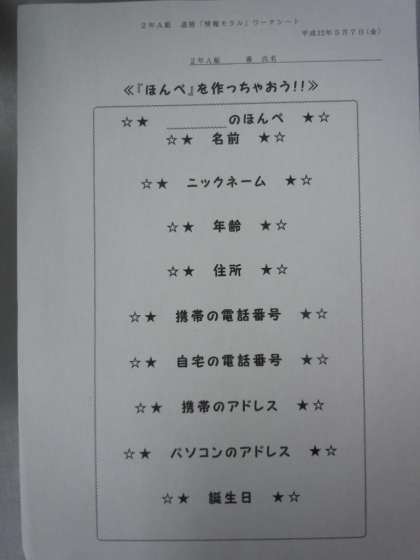 ２年Ａ組　道徳「情報モラル」ワークシート
平成22年５月７日（金）
２年Ａ組　　番　氏名
≪『ほんぺ』を作っちゃおう！！≫
☆★　＿＿＿＿＿のほんぺ　★☆
☆★　名前　★☆
☆★　ニックネーム　★☆
☆★　年齢　★☆
☆★　住所　★☆
☆★　携帯の電話番号　★☆
☆★　自宅の電話番号　★☆
☆★　携帯のアドレス　★☆
☆★　パソコンのアドレス　★☆
☆★　誕生日　★☆